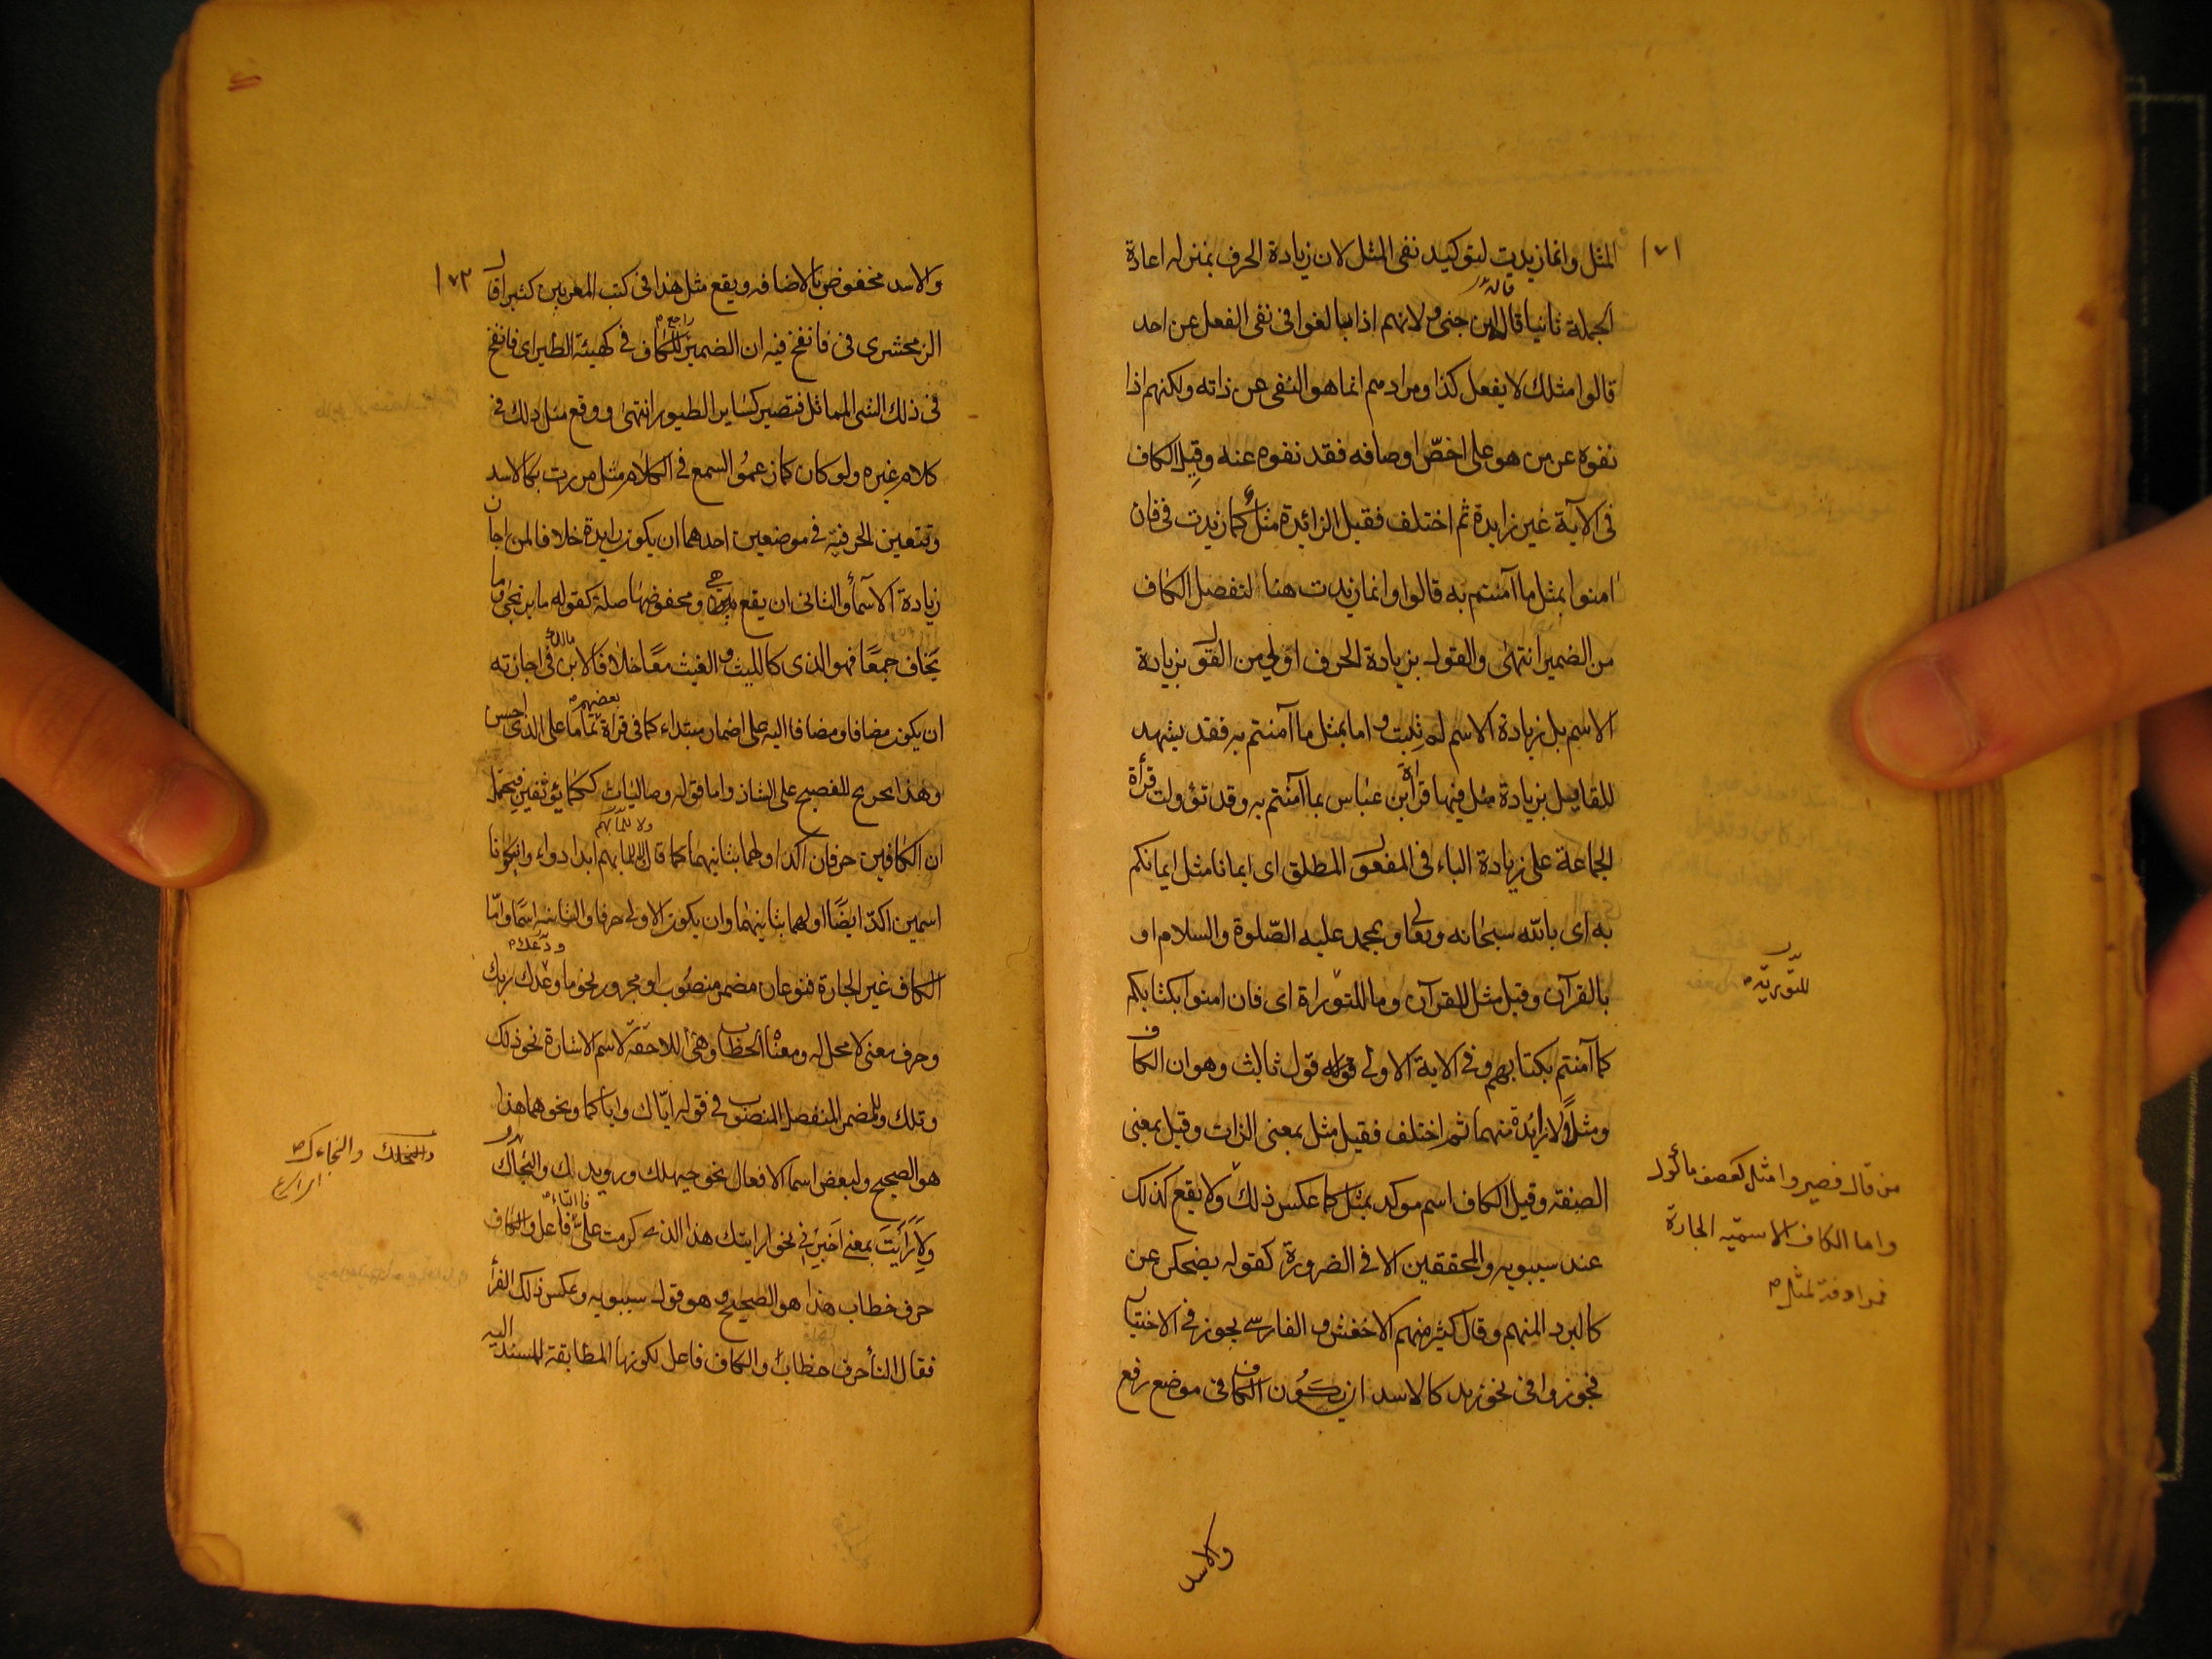 ١٧١
المثل وانما زيدت لتوكيد نفى المثل لان زيادة الحرف بمنزله اعادة
الجملة ثانيا قاله ابن جنى ولانهم اذا بالغوا فى نفى الفعل عن احد
قالوا مثلك لا يفعل كذا ومرادهم انما هو النفى عن ذاته ولكنهم اذا
نفوه عن من هو على اخصّ اوصافه فقد نفوه عنه وقيل الكاف
فى الآية غير زايدة ثم اختلف فقيل الزائدة مثل كما زيدت فى فان
امنوا بمثل ما آمنتم به قالوا وانما زيدت هنا لتفصل الكاف
من الضمير انتهى والقول بزيادة الحرف اولى من القول بزيادة
الاسم بل زيادة الاسم لم تثبت واما بمثل ما آمنتم به فقد يشهد
للقايل بزيادة مثل فيها قرأة ابن عباس بما آمنتم به وقد تؤولت قرأة
الجماعة على زيادة الباء فى المفعول المطلق اى ايمانا مثل ايمانكم
به اى بالله سبحانه وتعالى او بمحمد عليه الصّلوة والسلام او
بالقرآن وقيل مثل للقرآن وما للتوراة اى فان امنوا بكتابكم
للتوريّة
كما آمنتم بكتابهم وفى الاية الاولى قول ثالث وهو ان الكاف
ومثلاً لا زايدة منهما ثم اختلف فقيل مثل بمعنى الذات وقيل بمعنى
الصفة وقيل الكاف اسم موكد بمثل كما عكس ذلك ولا يقع كذلك
من قال فصيروا مثل كعصف مأكول
واما الكاف الاسميّه الجارة
فمرادفة لمثل
عند سيبويه والمحققين الا فى الضرورة كقوله يضحكن عن
كالبرد المنهم وقال كثير منهم الاخفش والفارسى يجوز فى الاختيار
فجوزوا فى نحو زيد كالاسد ان يكون الكاف فى موضع رفع
والاسد
١٧٢
والاسد مخفوض بالاضافه ويقع مثل هذا فى كتب المعربين كثيرا قال
الزمخشرى فى فانفخ فيه ان الضمير راجع للكاف فى كهيئة الطير اى فانفخ
فى ذلك الشى المماثل فتصير كساير الطيور انتهى ووقع مثل ذلك فى
كلام غيره ولو كان كما زعموا لسمع فى الكلام مثل مررت بكالاسد
وتتعين الحرفية فى موضعين احدهما ان يكون زايدة خلافا لمن اجاز
زيادة الاسما والثانى ان يقع هى ومخفوضها صلة كقوله ما يرتجى وما
يخاف جمعًا فهو الذى كالليث والغيث معًا خلافا لابن مالك فى اجازته
ان يكون مضافا ومضافا اليه على اضمار مبتداء كما فى قراة بعضهم تماما على الذى احسن
وهذا تخريج للفصيح على الشاذ واما قوله وصاليات ككما يؤثفين فيحتمل
ان الكافين حرفان اكد اولهما بثانيهما كما قال ولا للما بهم ابدا دواء وان يكونا
اسمين اكد ايضًا اولهما بثانيهما وان يكون الاولى حرفا والثانيه اسمًا وامّا
الكاف غير الجارة فنوعان مضمر منصوب او مجرور نحو ما ودّعك ربك
وحرف معنى لا محل له ومعناه الخطاب وهى اللاحقة لاسم الاشارة نحو ذلك
وتلك وللمضمر المنفصل المنصوب فى قوله ايّاك واياكما ونحوهما هذا
هو الصحيح ولبعض اسما الافعال نحو حيهلك ورويدك والنجاك
والنجاءك
ولارأيت بمعنى اخبرنى نحو ارايتك هذا الذى كرمت علىّ فالتاء فاعل والكاف
حرف خطاب هذا هو الصحيح وهو قول سيبويه وعكس ذلك الفرأ
فقال التأ حرف خطاب والكاف فاعل لكونها المطابقة للمسند اليه